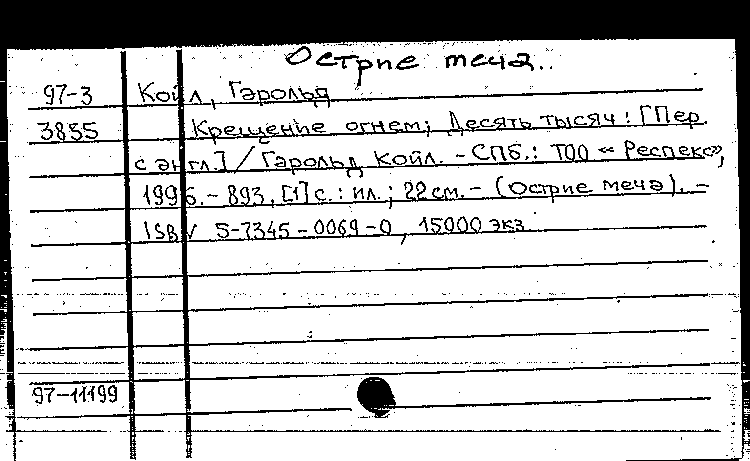 Острие меча..
97-3 Койл, Гарольд
3835 Крещение огнем; Десять тысяч : [Пер.
с англ.] / Гарольд Койл. - СПб.: ТОО «Респекс»,
1996. - 893, [1] с. : ил. ; 22 см. - (Острие меча). -
ISBN 5-7345-0069-0, 15000 экз
97-11199